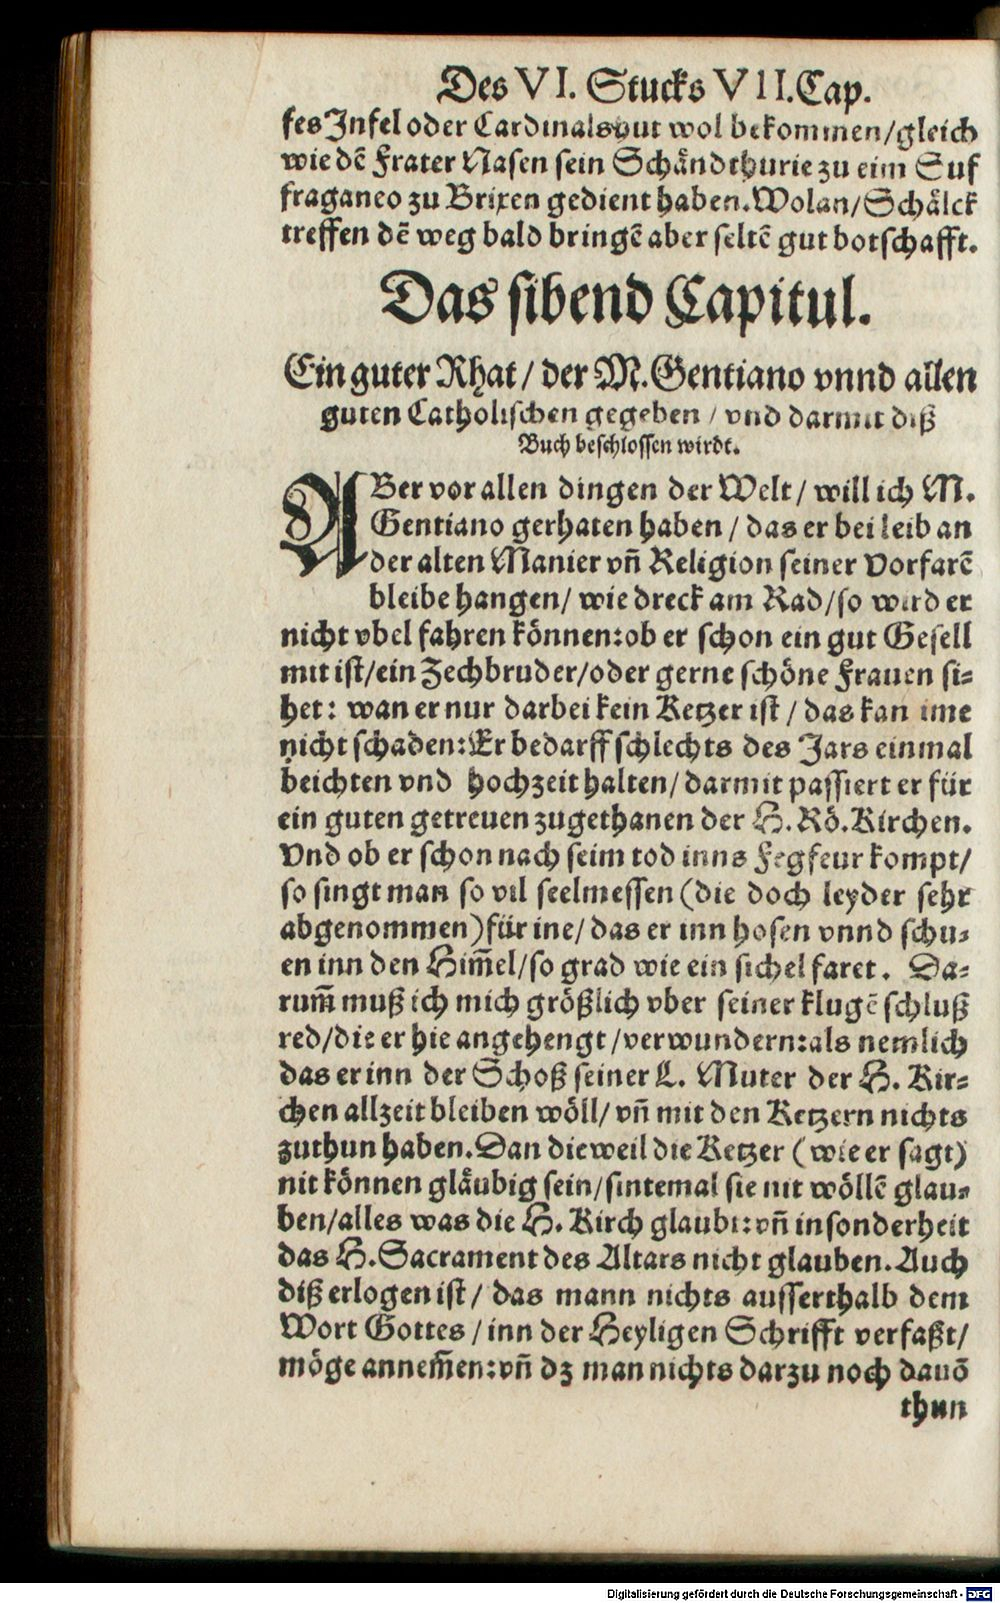 Des VI. Stucks VII. Cap.
fes Infel oder Cardinalshut wol bekommen/gleich
wie dē Frater Nasen sein Schändthurie zu eim Suf
fraganeo zu Brixen gedient haben. Wolan/Schälck
treffen dē weg bald bringē aber seltē gut botschafft.
Das sibend Capitul.
Ein guter Rhat/ der M. Gentiano vnnd allen
guten Catholischen gegeben / vnd darmit diß
Buch beschlossen wirdt.
ABer vor allen dingen der Welt/ will ich M.
Gentiano gerhaten haben / das er bei leib an
der alten Manier vñ Religion seiner Vorfarē
bleibe hangen/ wie dreck am Rad/so wird er
nicht vbel fahren können:ob er schon ein gut Gesell
mit ist/ein Zechbruder/oder gerne schöne Frauen si⸗
het: wan er nur darbei kein Ketzer ist / das kan ime
nicht schaden:Er bedarff schlechts des Jars einmal
beichten vnd hochzeit halten/ darmit passiert er für
ein guten getreuen zugethanen der H. Rö. Kirchen.
Vnd ob er schon nach seim tod inns Fegfeur kompt/
so singt man so vil seelmessen (die doch leyder sehr
abgenommen) für ine/ das er inn hosen vnnd schu⸗
en inn den Him̄el/so grad wie ein sichel faret. Da⸗
rum̄ muß ich mich größlich vber seiner klugē schluß
red/die er hie angehengt /verwundern:als nemlich
das er inn der Schoß seiner L. Muter der H. Kir⸗
chen allzeit bleiben wöll/ vñ mit den Ketzern nichts
zuthun haben. Dan dieweil die Ketzer (wie er sagt)
nit können gläubig sein/sintemal sie nit wöllē glau⸗
ben/alles was die H. Kirch glaubt:vñ insonderheit
das H. Sacrament des Altars nicht glauben. Auch
diß erlogen ist/ das mann nichts ausserthalb dem
Wort Gottes /inn der Heyligen Schrifft verfaßt/
möge annem̄en:vñ dz man nichts darzu noch dauō
thun
Digitalisierung gefördert durch die Deutsche Forschungsgemeinschaft - DFG